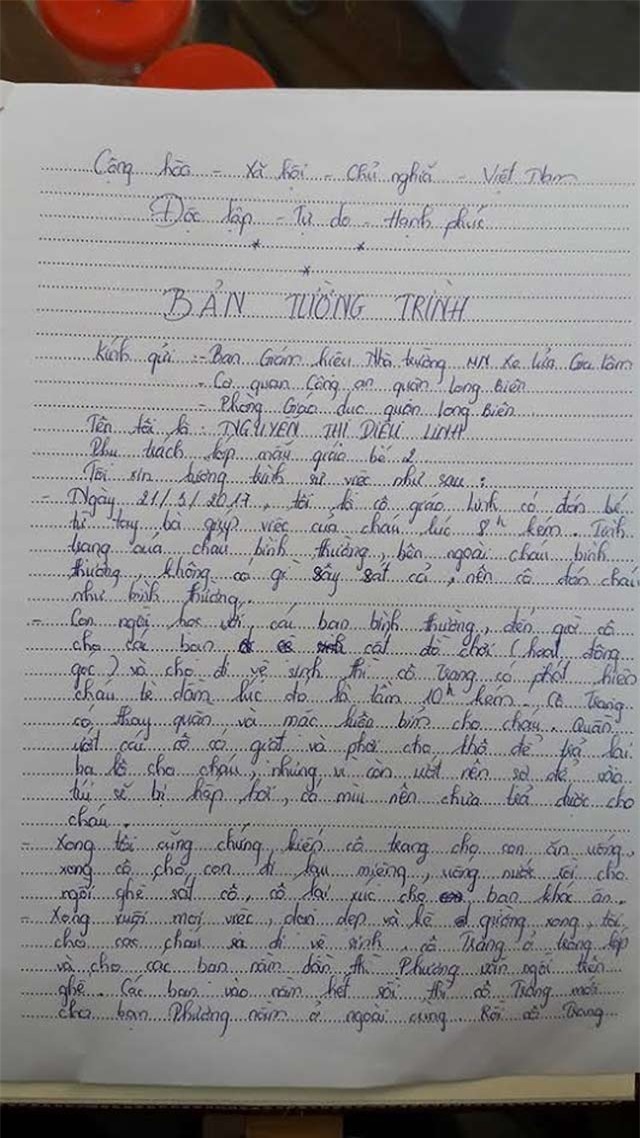 Cộng hòa - Xã hội - Chủ nghĩa - Việt Nam
Độc lập - Tự do - Hạnh phúc
BẢN TƯỜNG TRÌNH
Kính gửi : - Ban Giám hiệu Nhà trường MN Xe lửa Gia Lâm
- Cơ quan Công an quận Long Biên
- Phòng Giáo dục quận Long Biên
Tên tôi là : NGUYỄN THỊ DIỆU LINH
Phụ trách lớp mẫu giáo bé 2
Tôi xin tường trình sự việc như sau :
- Ngày 21/3/2017, tôi là cô giáo Linh có đón bé
từ tay bà giúp việc của cháu lúc 8h kém. Tình
trạng của cháu bình thường, bên ngoài cháu bình
thường, không có gì sây sát cả, nên cô đón cháu
như bình thường.
- Con ngồi học với các bạn bình thường, đến giờ cô
cho các bạn cất đồ chơi (hoạt động
góc) và cho đi vệ sinh thì cô Trang có phát hiện
cháu tè dầm lúc đó là tầm 10h kém. Cô Trang
có thay quần và mặc kiểu bỉm cho cháu. Quần
ướt các cô có giặt và phơi cho khô để trả lại
ba lô cho cháu, nhưng vì còn ướt nên sợ để vào
túi sẽ bị hấp hơi, có mùi nên chưa trả được cho
cháu.
- Xong tôi cũng chứng kiến cô trang cho con ăn uống,
xong cô cho con đi lau miệng, uống nước rồi cho
ngồi ghế sát cô, cô lại xúc cho bạn khác ăn.
- Xong xuôi mọi việc, dọn dẹp và kê giường xong, tôi
cho các cháu ra đi vệ sinh, cô Trang ở trong lớp
và cho các bạn nằm dần thì Phương vẫn ngồi trên
ghế. Các bạn vào nằm hết rồi thì cô Trang mới
cho bạn Phương nằm ở ngoài cùng. Rồi cô Trang